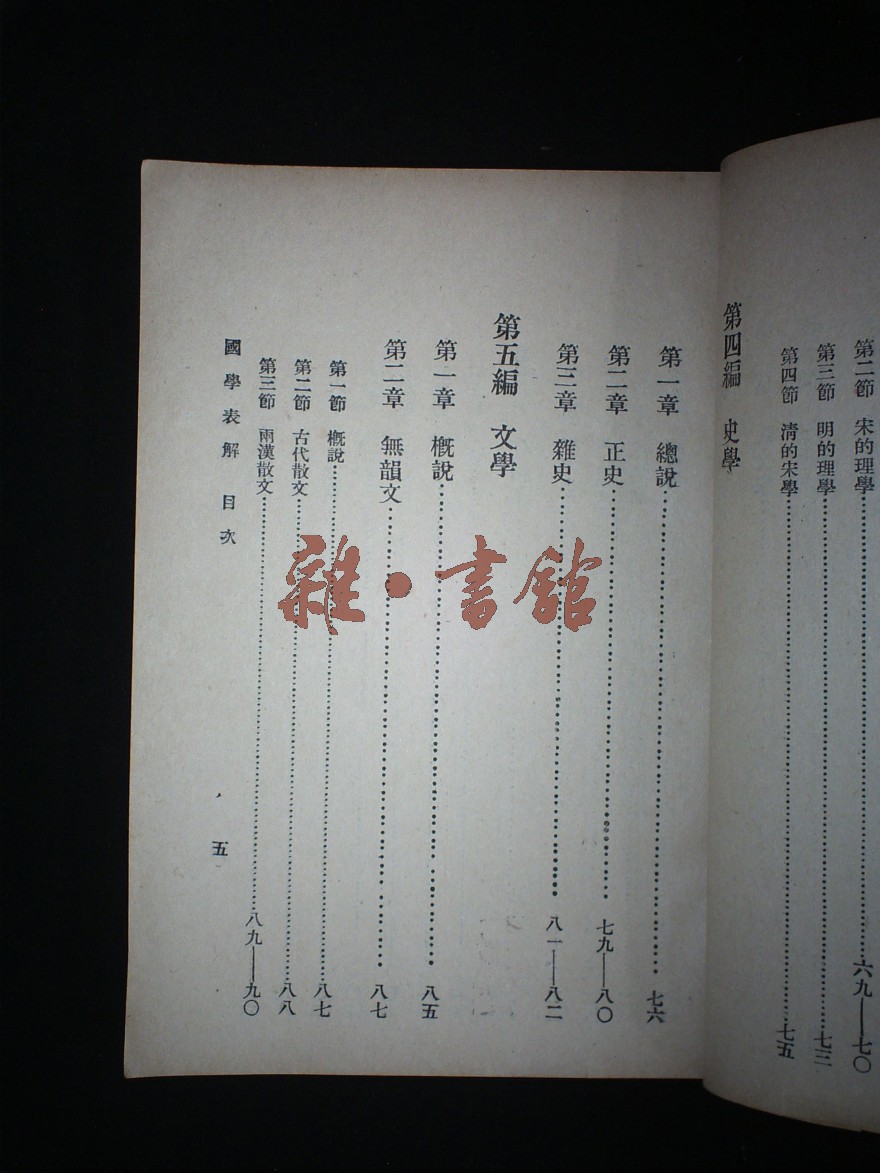 第二節 宋的理學……六九——七〇
第三節 明的理學……七三
第四節 清的宋學……七五
第四編 史學
第一章 總說……七六
第二章 正史……七九——八〇
第三章 雜史……八一——八二
第五編 文學
第一章 槪說……八五
第二章 無韻文……八七
第一節 槪說……八七
第二節 古代散文……八八
第三節 兩漢散文……八九——九〇
國學表解 目次
五
雜·書館